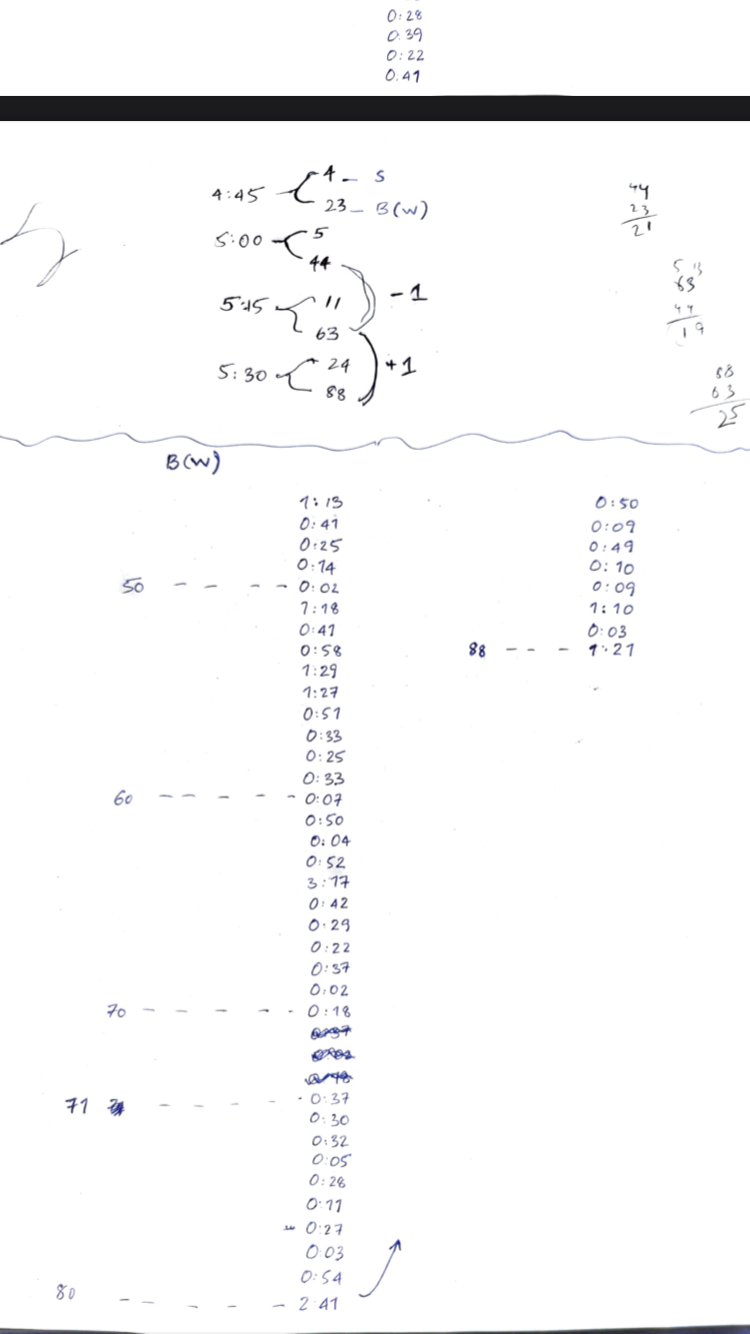 0:28
0:39
0:22
0.41
4:45 4 - S
23 - B(W)
5:00 5
44
5:15 11
63
- 1
5:30 24
88
+1
44
23
21
5 13
63
44
19
88
63
25
B(W)
1:13
0:41
0:25
0:14
50 - - - - 0:02
1:18
0:41
0:58
1:29
1:27
0:51
0:33
0:25
0:33
60 - - - - - 0:07
0:50
0:04
0:52
3:17
0:42
0:29
0:22
0:37
0:02
70 - - - - - 0:18
71 - - - - - 0:37
0:30
0:32
0:05
0:28
0:11
0:27
0:03
0:54
80 - - - - - 2:41
0:50
0:09
0:49
0:10
0:09
1:10
0:03
88 - - - 1:21